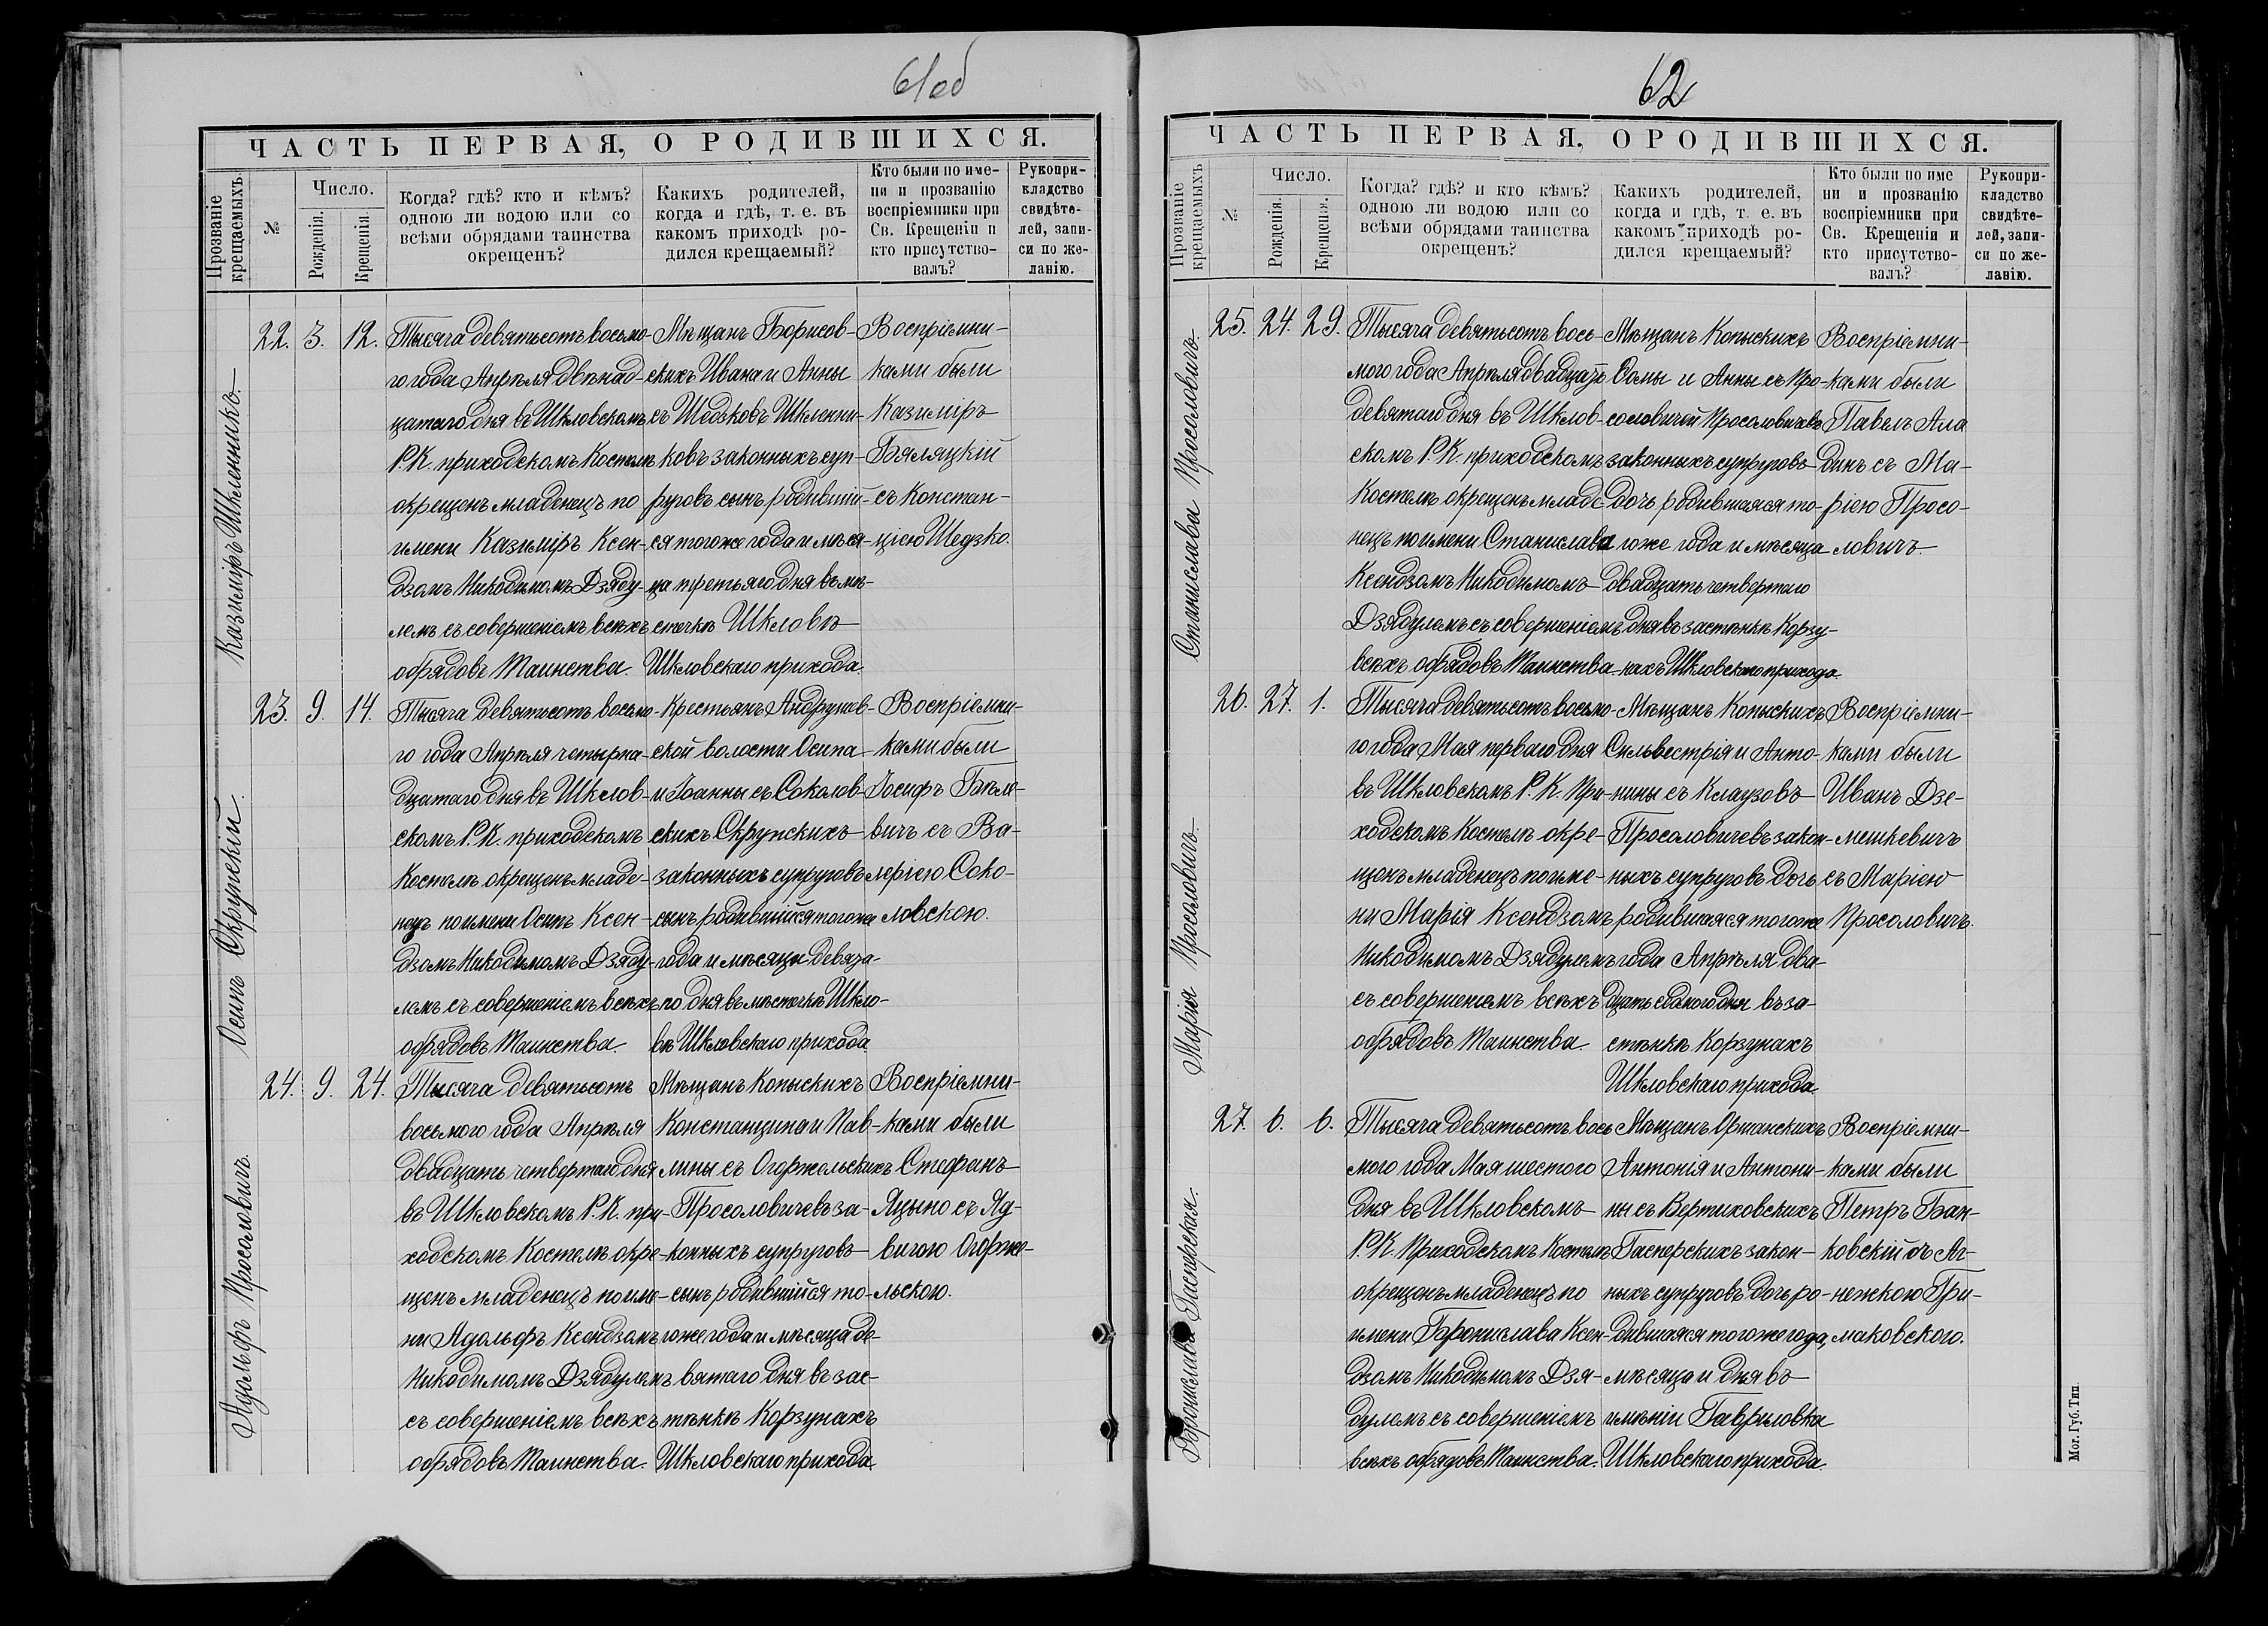 61об
ЧАСТЬ ПЕРВАЯ, О РОДИВШИХСЯ.
Прозваніе крещаемыхъ.
№
Число.
Рожденія.
Крещенія.
Когда? гдѣ? кто и кѣмъ?
одною ли водою или со
всѣми обрядами таинства
окрещенъ?
Какихъ родителей,
когда и гдѣ, т. е. въ
какомъ приходѣ ро-
дился крещаемый?
Кто были по име-
ни и прозванію
воспріемники при
Св. Крещеніи и
кто присутство-
валъ?
Рукопри-
кладство
свидѣте-
лей, запи-
си по же-
ланію.
Казиміръ Шкленникъ.
22. 3. 12.
Тысяча девятьсотъ восьмо-
го года Апрѣля двѣнад-
цатаго дня въ Шкловскомъ
Р.К. приходскомъ Костелѣ
окрещенъ младенецъ по
имени Казиміръ Ксен-
дзомъ Никодимомъ Дзяду-
лемъ съ совершеніемъ всѣхъ
обрядовъ Таинства.
Мѣщанъ Борисов-
скихъ Ивана и Анны
съ Шедзковъ Шкленни-
ковъ законныхъ суп-
руговъ сынъ родившій-
ся того же года и мѣся-
ца третьяго дня въ мѣ-
стечкѣ Шкловѣ
Шкловскаго прихода.
Воспріемни-
ками были
Казиміръ
Бяляцкій
съ Констан-
ціею Шедзко.
Осипъ Скрупскій.
23. 9. 14.
Тысяча девятьсотъ восьмо-
го года Апрѣля четырна-
дцатаго дня въ Шклов-
скомъ Р.К. приходскомъ
Костелѣ окрещенъ младе-
нецъ по имени Осипъ Ксен-
дзомъ Никодимомъ Дзяду-
лемъ съ совершеніемъ всѣхъ
обрядовъ Таинства.
Крестьянъ Андрушев-
ской волости Осипа
и Іоанны съ Соколов-
скихъ Скрупскихъ
законныхъ супруговъ
сынъ родившійся того же
года и мѣсяца девята-
го дня въ мѣстечкѣ Шкло-
вѣ Шкловскаго прихода.
Воспріемни-
ками были
Іосифъ Бѣле-
вичъ съ Ва-
леріею Соко-
ловскою.
Адольфъ Просоловичъ.
24. 9. 24.
Тысяча девятьсотъ
восьмого года Апрѣля
двадцать четвертаго дня
въ Шкловскомъ Р.К. при-
ходскомъ Костелѣ окре-
щенъ младенецъ по име-
ни Адольфъ Ксендзомъ
Никодимомъ Дзядулемъ
съ совершеніемъ всѣхъ
обрядовъ Таинства.
Мѣщанъ Копыскихъ
Константина и Пав-
лины съ Огоржельскихъ
Просоловичевъ за-
конныхъ супруговъ
сынъ родившійся то-
го же года и мѣсяца де-
вятаго дня въ зас-
тѣнкѣ Корзунахъ
Шкловскаго прихода.
Воспріемни-
ками были
Стефанъ
Яцыно съ Яд-
вигою Огорже-
льскою.
62
ЧАСТЬ ПЕРВАЯ, О РОДИВШИХСЯ.
Прозваніе крещаемыхъ
№
Число.
Рожденія.
Крещенія.
Когда? гдѣ? и кто кѣмъ?
одною ли водою или со
всѣми обрядами таинства
окрещенъ?
Какихъ родителей,
когда и гдѣ, т. е. въ
какомъ приходѣ ро-
дился крещаемый?
Кто были по име
ни и прозванію
воспріемники при
Св. Крещеніи и
кто присутство-
валъ?
Рукопри-
кладство
свидѣте-
лей, запи-
си по же-
ланію.
Станислава Просоловичъ.
25. 24. 29.
Тысяча девятьсотъ вось
мого года Апрѣля двадцать
девятаго дня въ Шклов-
скомъ Р.К. приходскомъ
Костелѣ окрещенъ младе
нецъ по имени Станислава
Ксендзомъ Никодимомъ
Дзядулемъ съ совершеніемъ
всѣхъ обрядовъ Таинства.
Мѣщанъ Копыскихъ
Ѳомы и Анны съ Про-
соловичей Просоловичевъ
законныхъ супруговъ
дочь родившаяся то-
го же года и мѣсяца
двадцать четвертаго
дня въ застѣнкѣ Корзу-
нахъ Шкловскаго прихода.
Воспріемни-
ками были
Павелъ Ала
динъ съ Ма-
ріею Просо-
ловичъ.
Марія Просоловичъ
26. 27. 1.
Тысяча девятьсотъ восьмо-
го года Мая перваго дня
въ Шкловскомъ Р.К. При-
ходскомъ Костелѣ окре-
щенъ младенецъ по име-
ни Марія Ксендзомъ
Никодимомъ Дзядулемъ
съ совершеніемъ всѣхъ
обрядовъ Таинства.
Мѣщанъ Копыскихъ
Сильвестрія и Анто-
нины съ Клаузовъ
Просоловичевъ закон-
ныхъ супруговъ дочь
родившаяся того же
года Апрѣля два-
дцать седьмого дня въ за-
стѣнкѣ Корзунахъ
Шкловскаго прихода.
Воспріемни-
ками были
Иванъ Дзе-
мешкевичъ
съ Маріею
Просоловичъ.
Бронислава Гасперская.
27. 6. 6.
Тысяча девятьсотъ вось
мого года Мая шестого
дня въ Шкловскомъ
Р.К. Приходскомъ Костелѣ
окрещенъ младенецъ по
имени Бронислава Ксен-
дзомъ Никодимомъ Дзя-
дулемъ съ совершеніемъ
всѣхъ обрядовъ Таинства.
Мѣщанъ Оршанскихъ
Антонія и Антони-
ны съ Вертиховскихъ
Гасперскихъ закон-
ныхъ супруговъ дочь ро-
дившаяся того же года,
мѣсяца и дня въ
имѣніи Гавриловка
Шкловскаго прихода.
Воспріемни-
ками были
Петръ Бан-
ковскій съ Аг-
нежкою Гри-
маковского.
Мог. Губ. Тип.